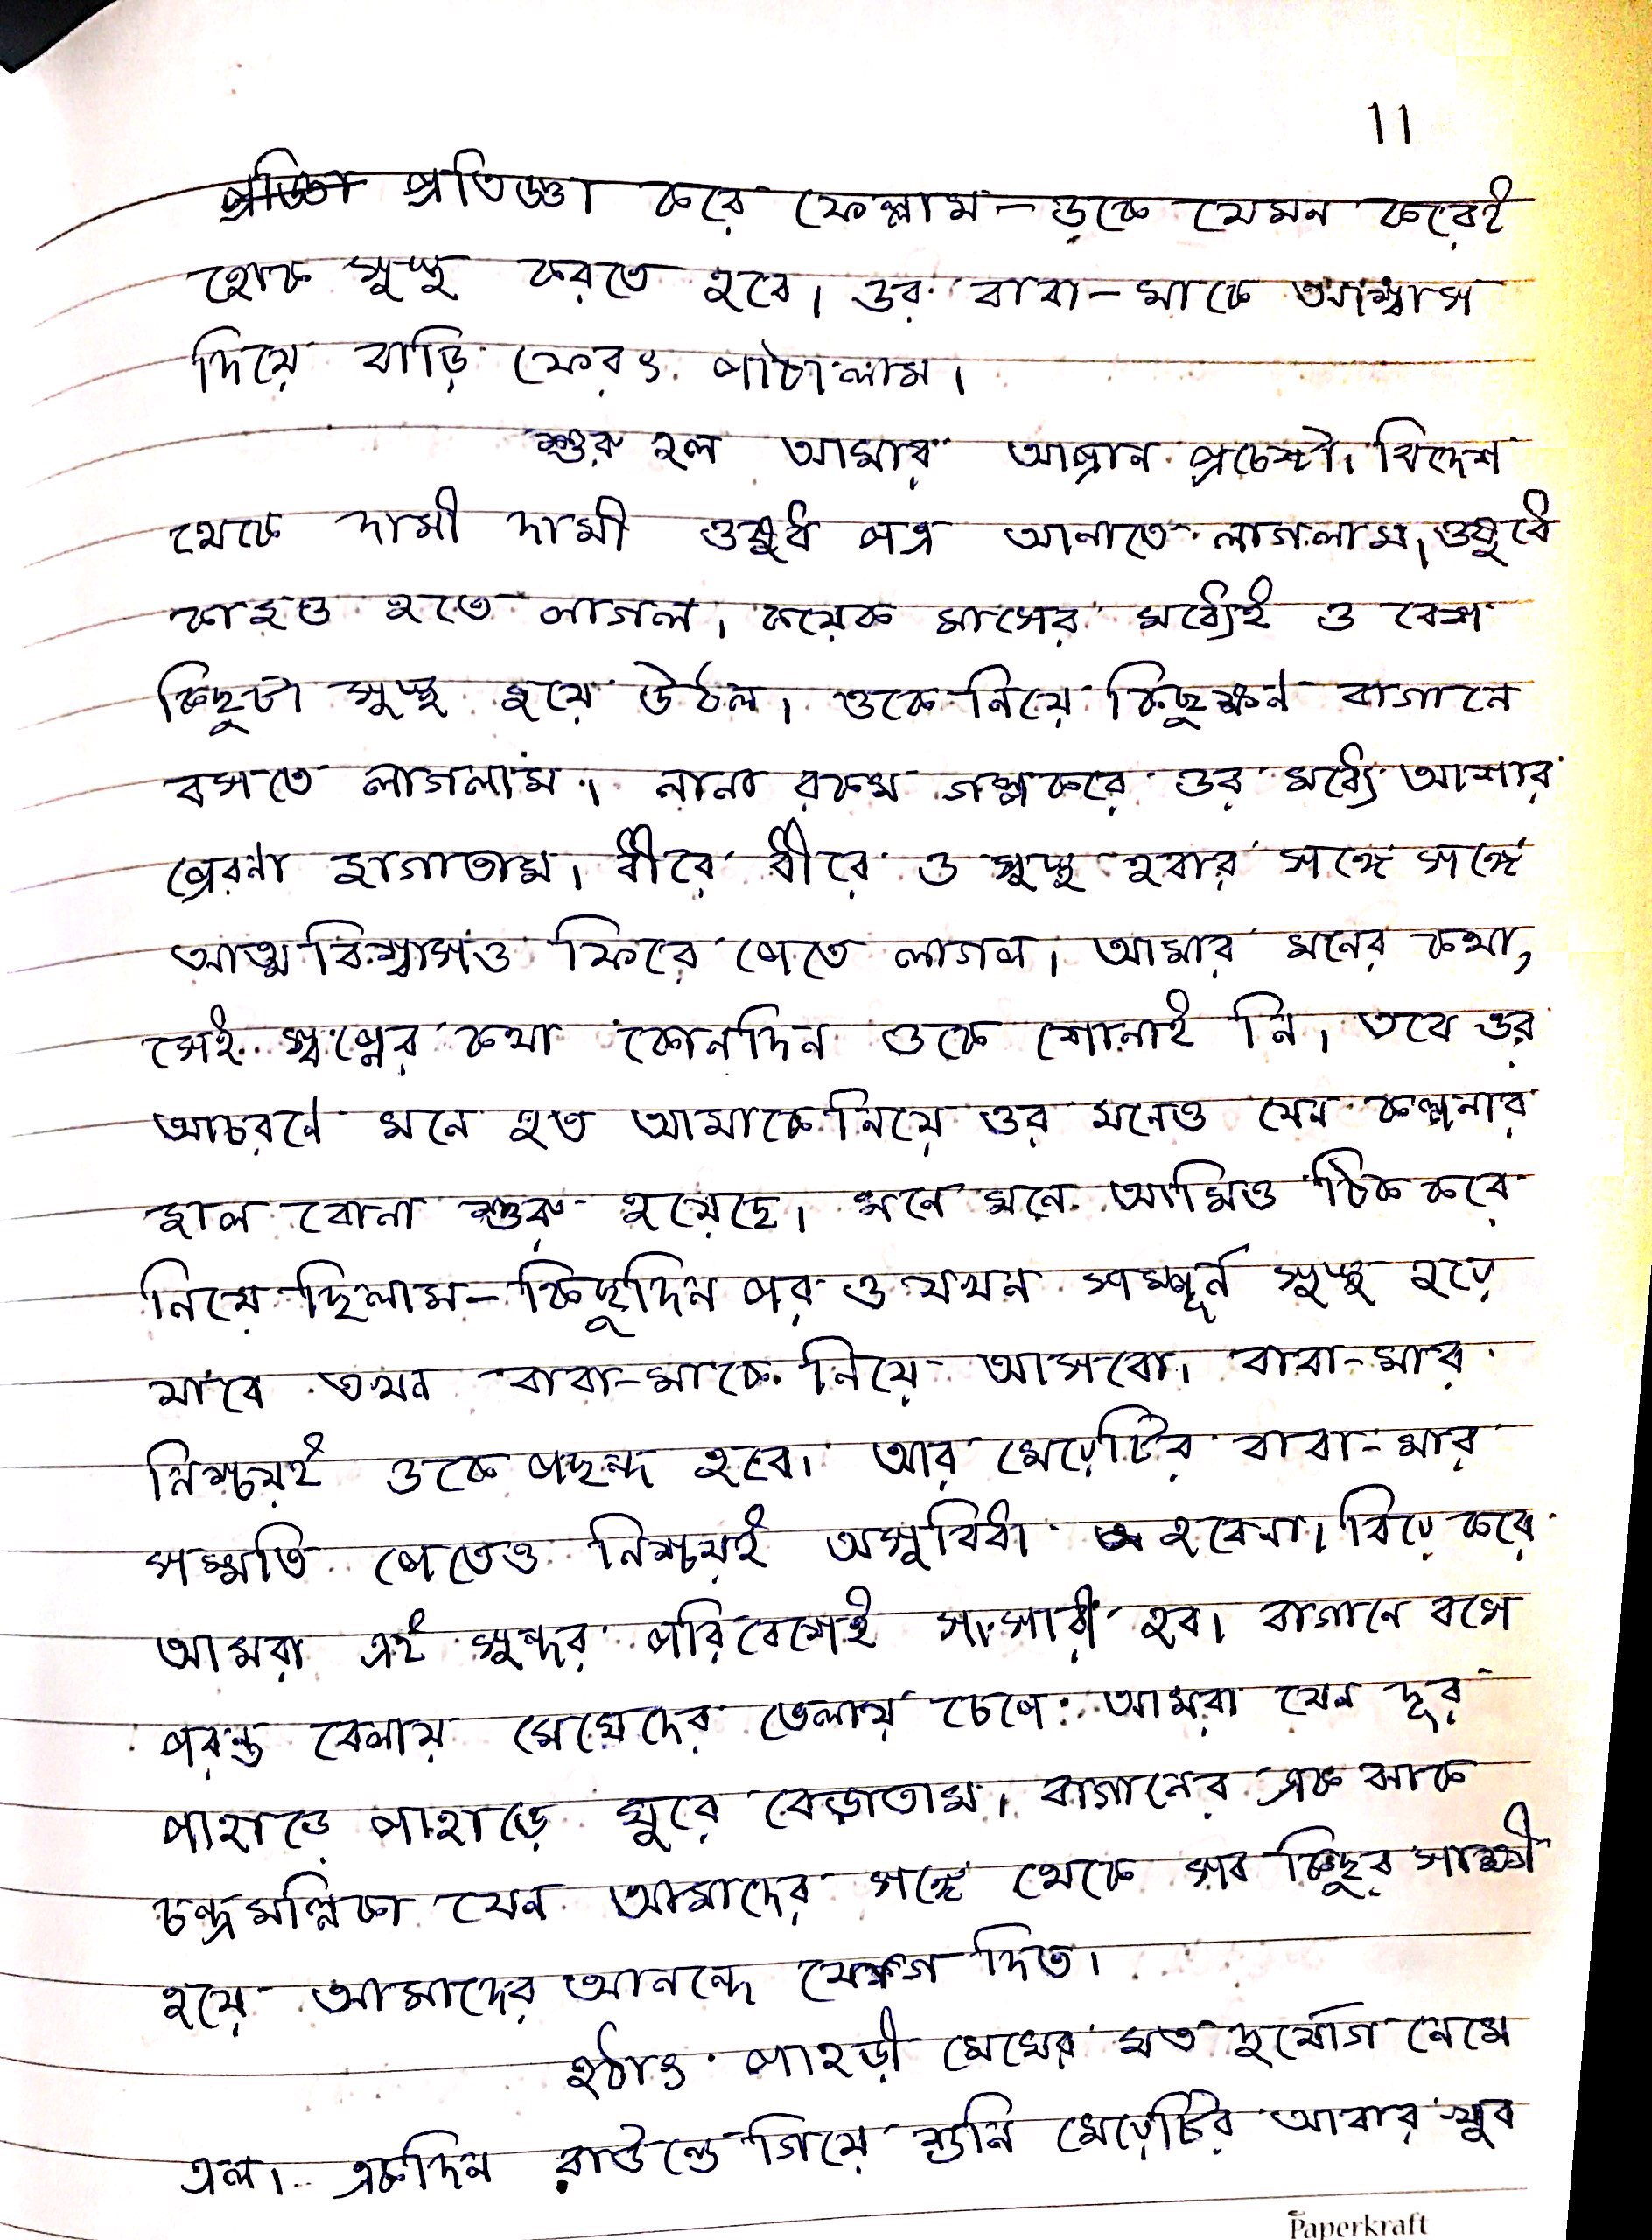 11
প্রতিজ্ঞা করে ফেল্লাম - ওকে যেমন করেই
হোক সুস্থ করতে হবে। ওর বাবা-মাকে আশ্বাস
দিয়ে বাড়ি ফেরৎ পাঠালাম।
শুরু হল আমার আপ্রান প্রচেষ্টা। বিদেশ
থেকে দামী দামী ওষুধ পত্র আনাতে লাগলাম। ওষুধে
কাজও হতে লাগল। কয়েক মাসের মধ্যেই ও বেশ
কিছুটা সুস্থ হয়ে উঠল। ওকে নিয়ে কিছুক্ষন বাগানে
বসতে লাগলাম। নানা রকম গল্পকরে ওর মধ্যে আশার
প্রেরনা জাগাতাম। ধীরে ধীরে ও সুস্থ হবার সঙ্গে সঙ্গে
আত্মবিশ্বাসও ফিরে পেতে লাগল। আমার মনের কথা,
সেই স্বপ্নের কথা কোনদিন ওকে শোনাই নি। তবে ওর
আচরণে মনে হত আমাকে নিয়ে ওর মনেও যেন কল্পনার
জাল বোনা শুরু হয়েছে। মনে মনে আমিও ঠিক করে
নিয়ে ছিলাম - কিছুদিন পর ও যখন সম্পূর্ন সুস্থ হয়ে
যাবে তখন বাবা-মাকে নিয়ে আসবো। বাবা-মার
নিশ্চয়ই ওকে পছন্দ হবে। আর মেয়েটির বাবা-মার
সম্মতি পেতেও নিশ্চয়ই অসুবিধা হবেনা। বিয়ে করে
আমরা এই সুন্দর পরিবেশেই সংসারী হব। বাগানে বসে
পরন্ত বেলায় মেঘেদের ভেলায় চেপে আমরা যেন দূর
পাহাড়ে পাহাড়ে ঘুরে বেড়াতাম। বাগানের এক ঝাক
চন্দ্রমল্লিকা যেন আমাদের সঙ্গে থেকে সব কিছুর সাক্ষী
হয়ে আমাদের আনন্দে যোগ দিত।
হঠাৎ পাহড়ী মেঘের মত দুর্যোগ নেমে
এল। একদিন রাউন্ডে গিয়ে শুনি মেয়েটির আবার খুব
Paperkraft